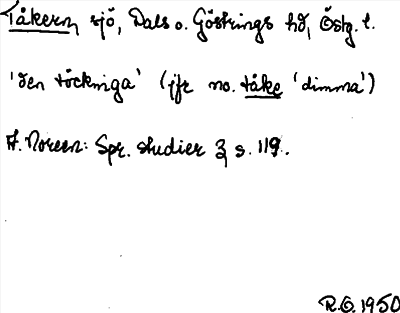 Tåkern, sjö, Dals o. Göstrings hd, Östg. l.
'den töckniga' (jfr no. tåke 'dimma')
A. Noreen: Spr. studier 3 s. 119.
R.O. 1950